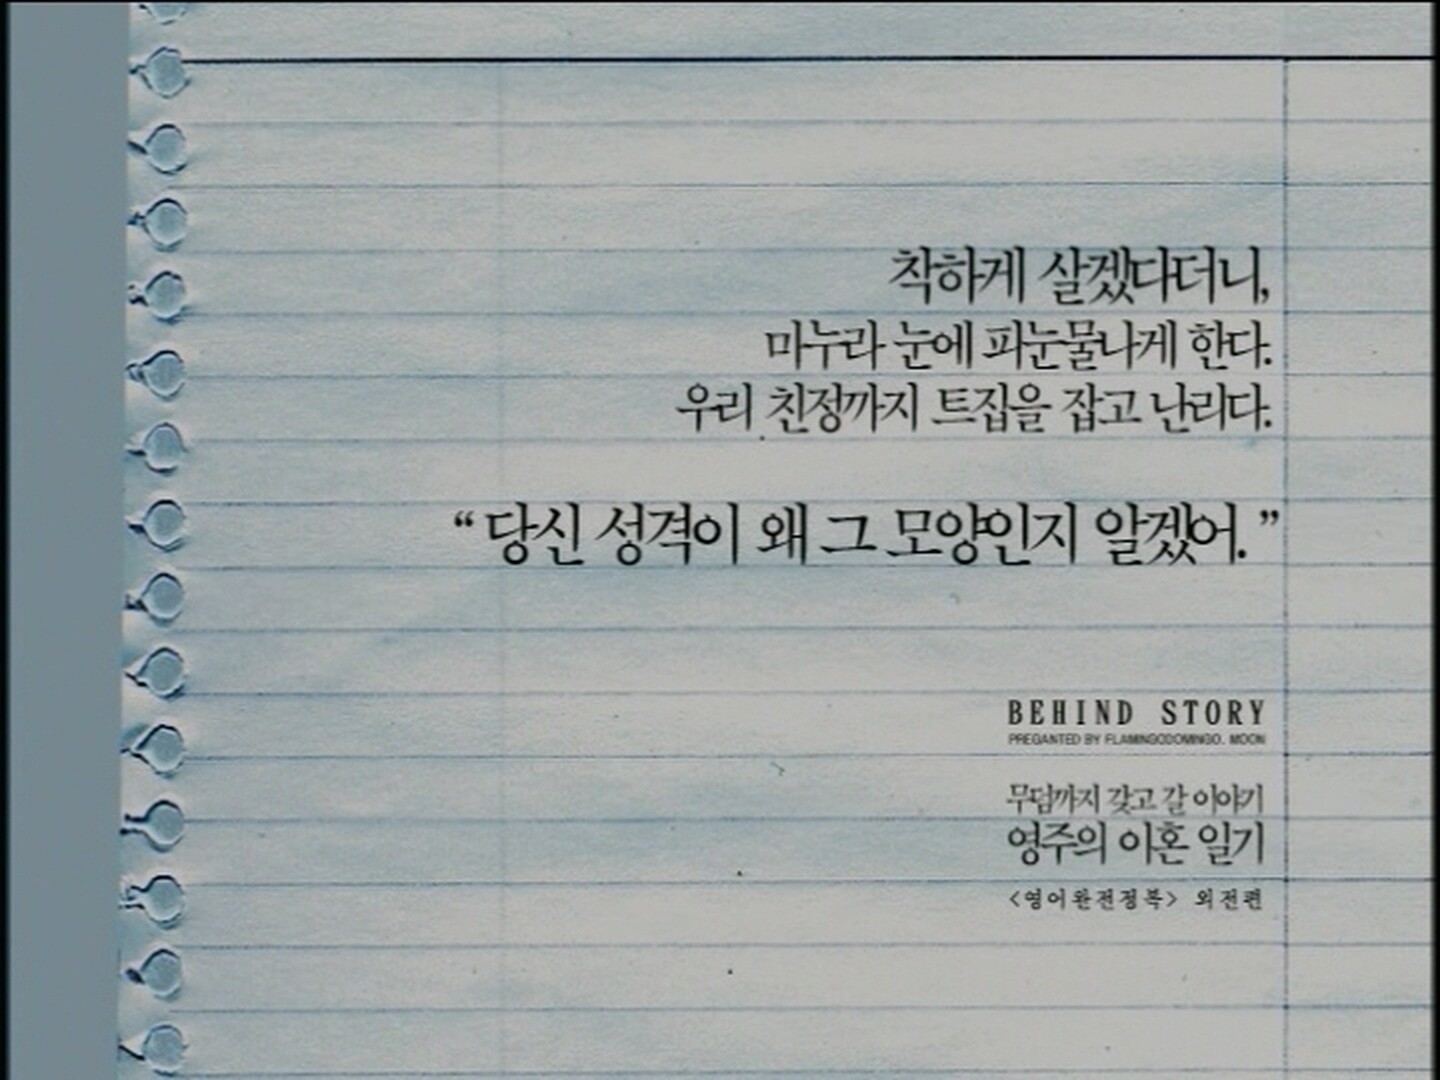 착하게 살겠다더니,
마누라 눈에 피눈물나게 한다.
우리 친정까지 트집을 잡고 난리다.
“당신 성격이 왜 그 모양인지 알겠어.”
BEHIND STORY
PREGANTED BY FLAMINGODOMINGO. MOON
무덤까지 갖고 갈 이야기
영주의 이혼 일기
<영어완전정복> 외전편